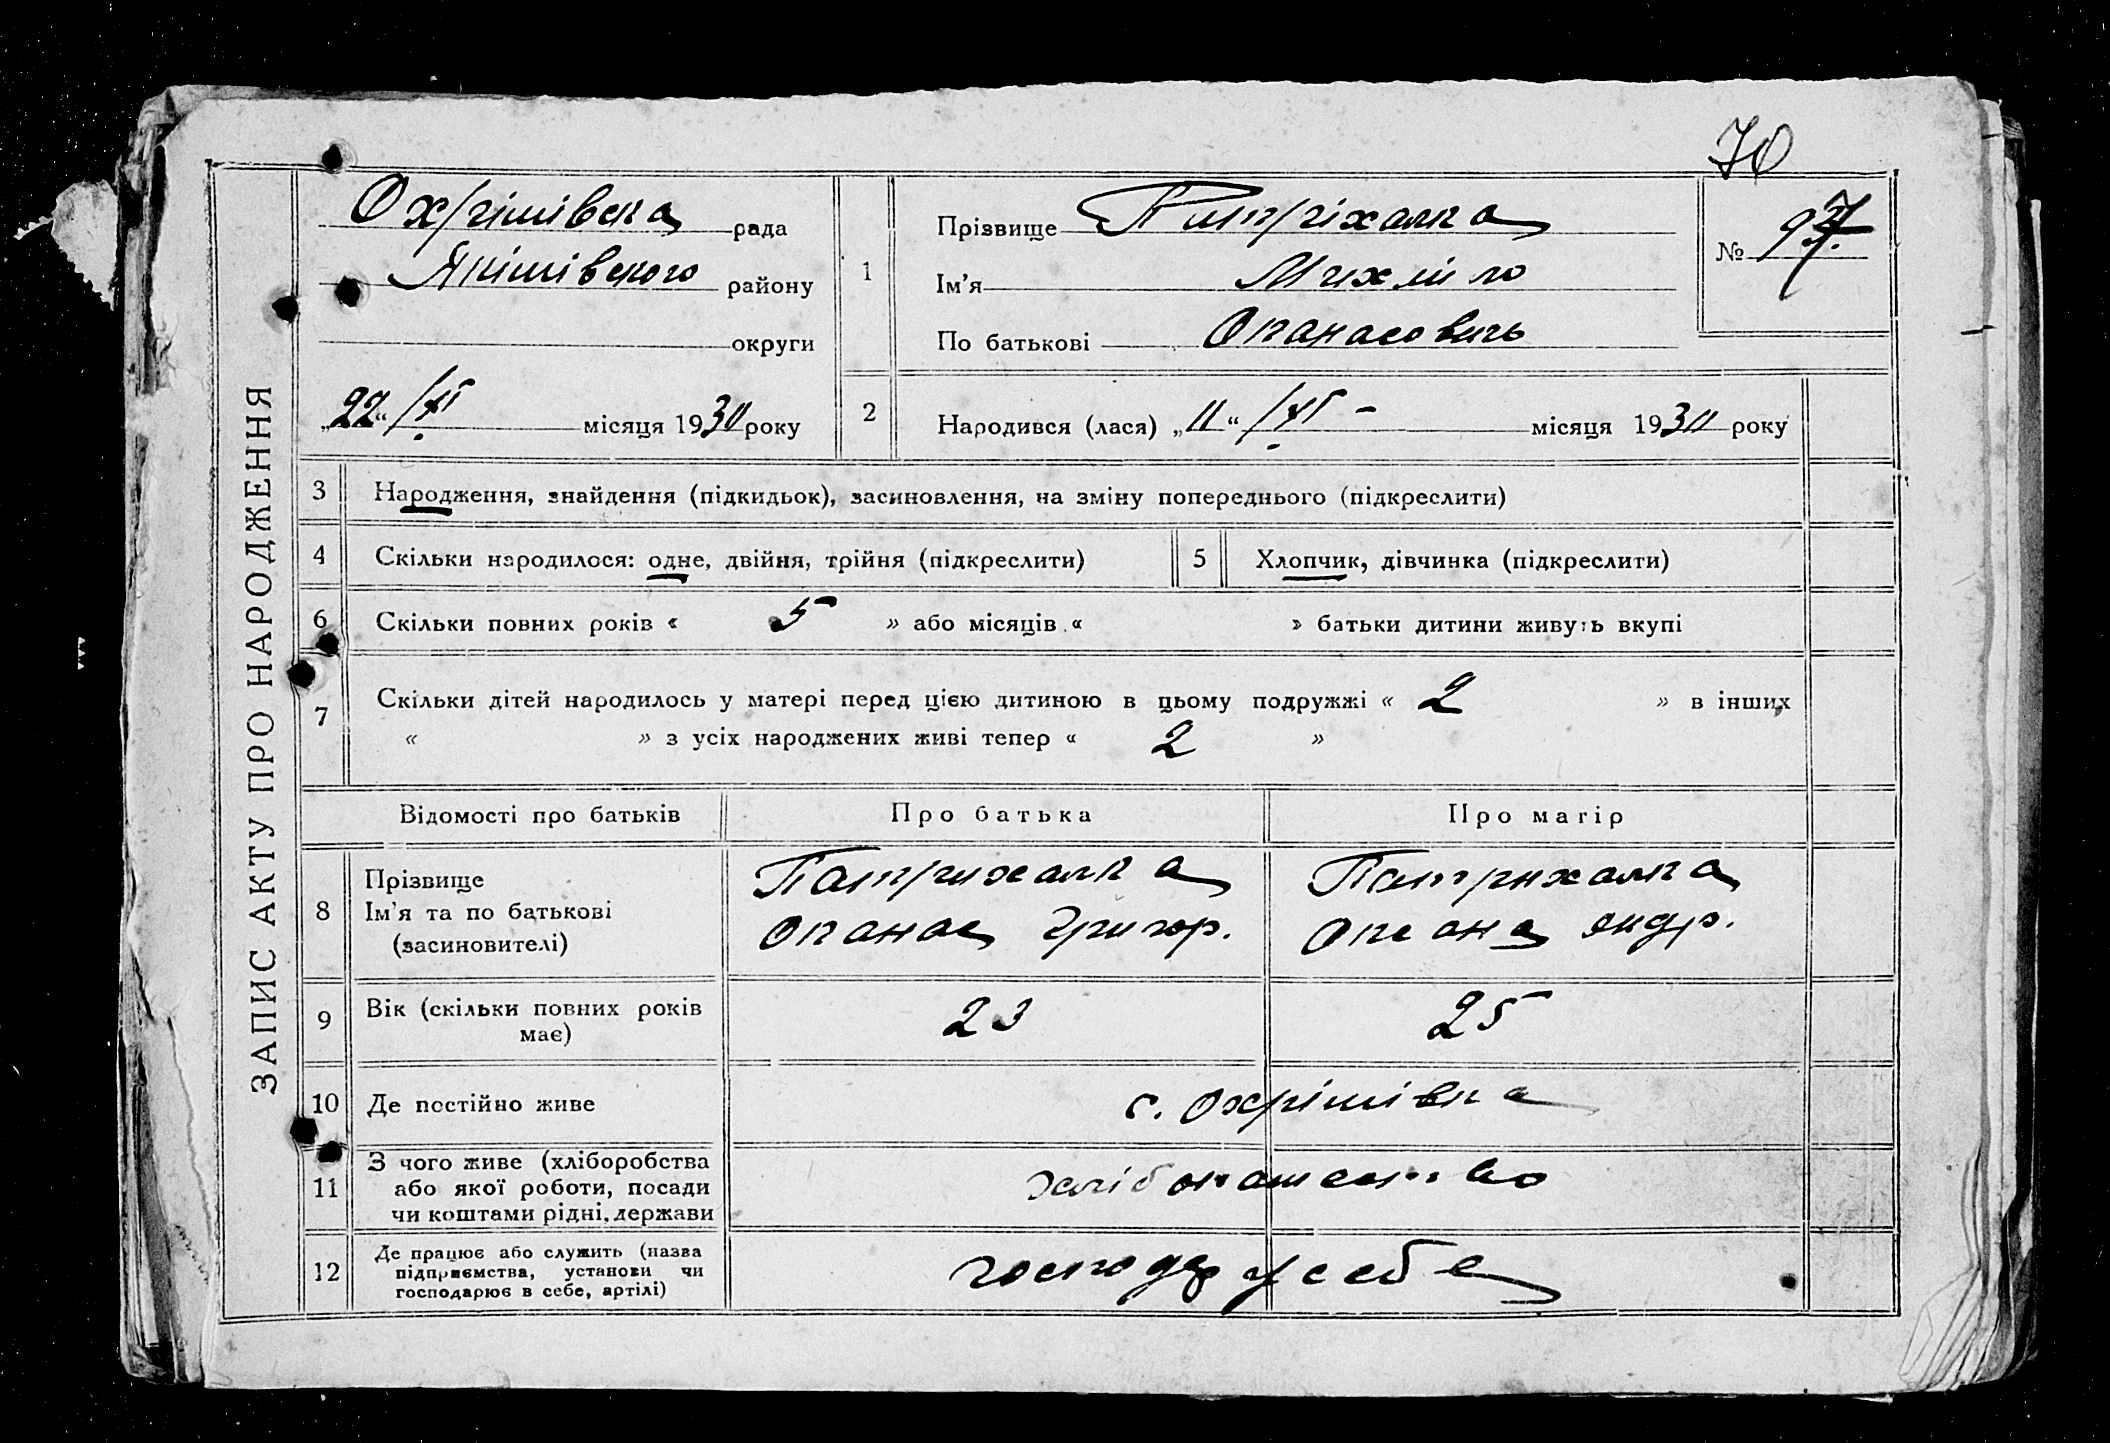 70
ЗАПИС АКТУ ПРО НАРОДЖЕННЯ
Охрімівска рада
Якімівского району
округи
„22“ /XI місяця 1930 року
1
Прізвище Патріхалка
Ім’я Михайло
По батькові Опанасовичь
№ 97
2
Народився (лася) „11“ /XI – місяця 1930 року
3 Народження, знайдення (підкидьок), засиновлення, на зміну попереднього (підкреслити)
4 Скільки народилося: одне, двійня, трійня (підкреслити)
5 Хлопчик, дівчинка (підкреслити)
6 Скільки повних років « 5 » або місяців « » батьки дитини живуть вкупі
7 Скільки дітей народилось у матері перед цією дитиною в цьому подружжі « 2 » в інших
« » з усіх народжених живі тепер « 2 »
Відомості про батьків Про батька Про матір
8 Прізвище
Ім’я та по батькові
(засиновителі)
Патрихалка
Опанас Григор.
Патрихалка
Оксана Андр.
9 Вік (скільки повних років
має)
23 25
10 Де постійно живе с. Охрімівка
11 З чого живе (хліборобства
або якої роботи, посади
чи коштами рідні, держави
хлібопашество
12 Де працює або служить (назва
підприємства, установи чи
господарює в себе, артілі)
господар у себе